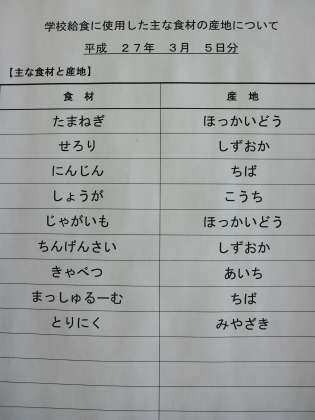 学校給食に使用した主な食材の産地について
平成　２７年　３月　５日分
【主な食材と産地】
食　材　産　地
たまねぎ　ほっかいどう
せろり　しずおか
にんじん　ちば
しょうが　こうち
じゃがいも　ほっかいどう
ちんげんさい　しずおか
きゃべつ　あいち
まっしゅるーむ　ちば
とりにく　みやざき